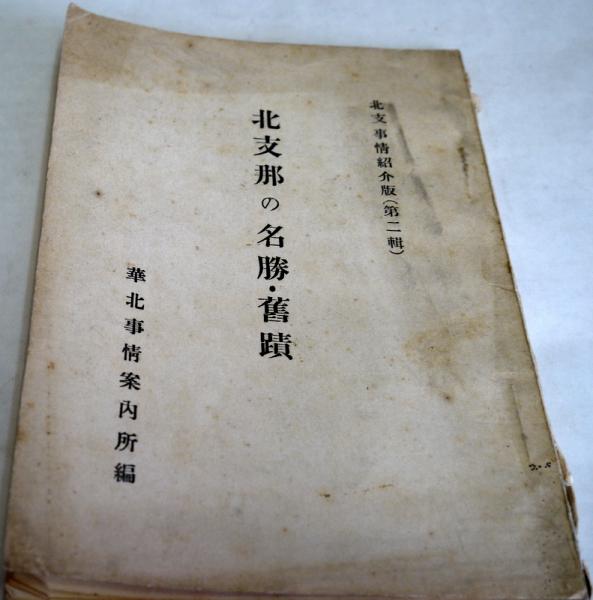 北支事情紹介版(第二輯)
北支那の名勝・舊蹟
華北事情案內所編